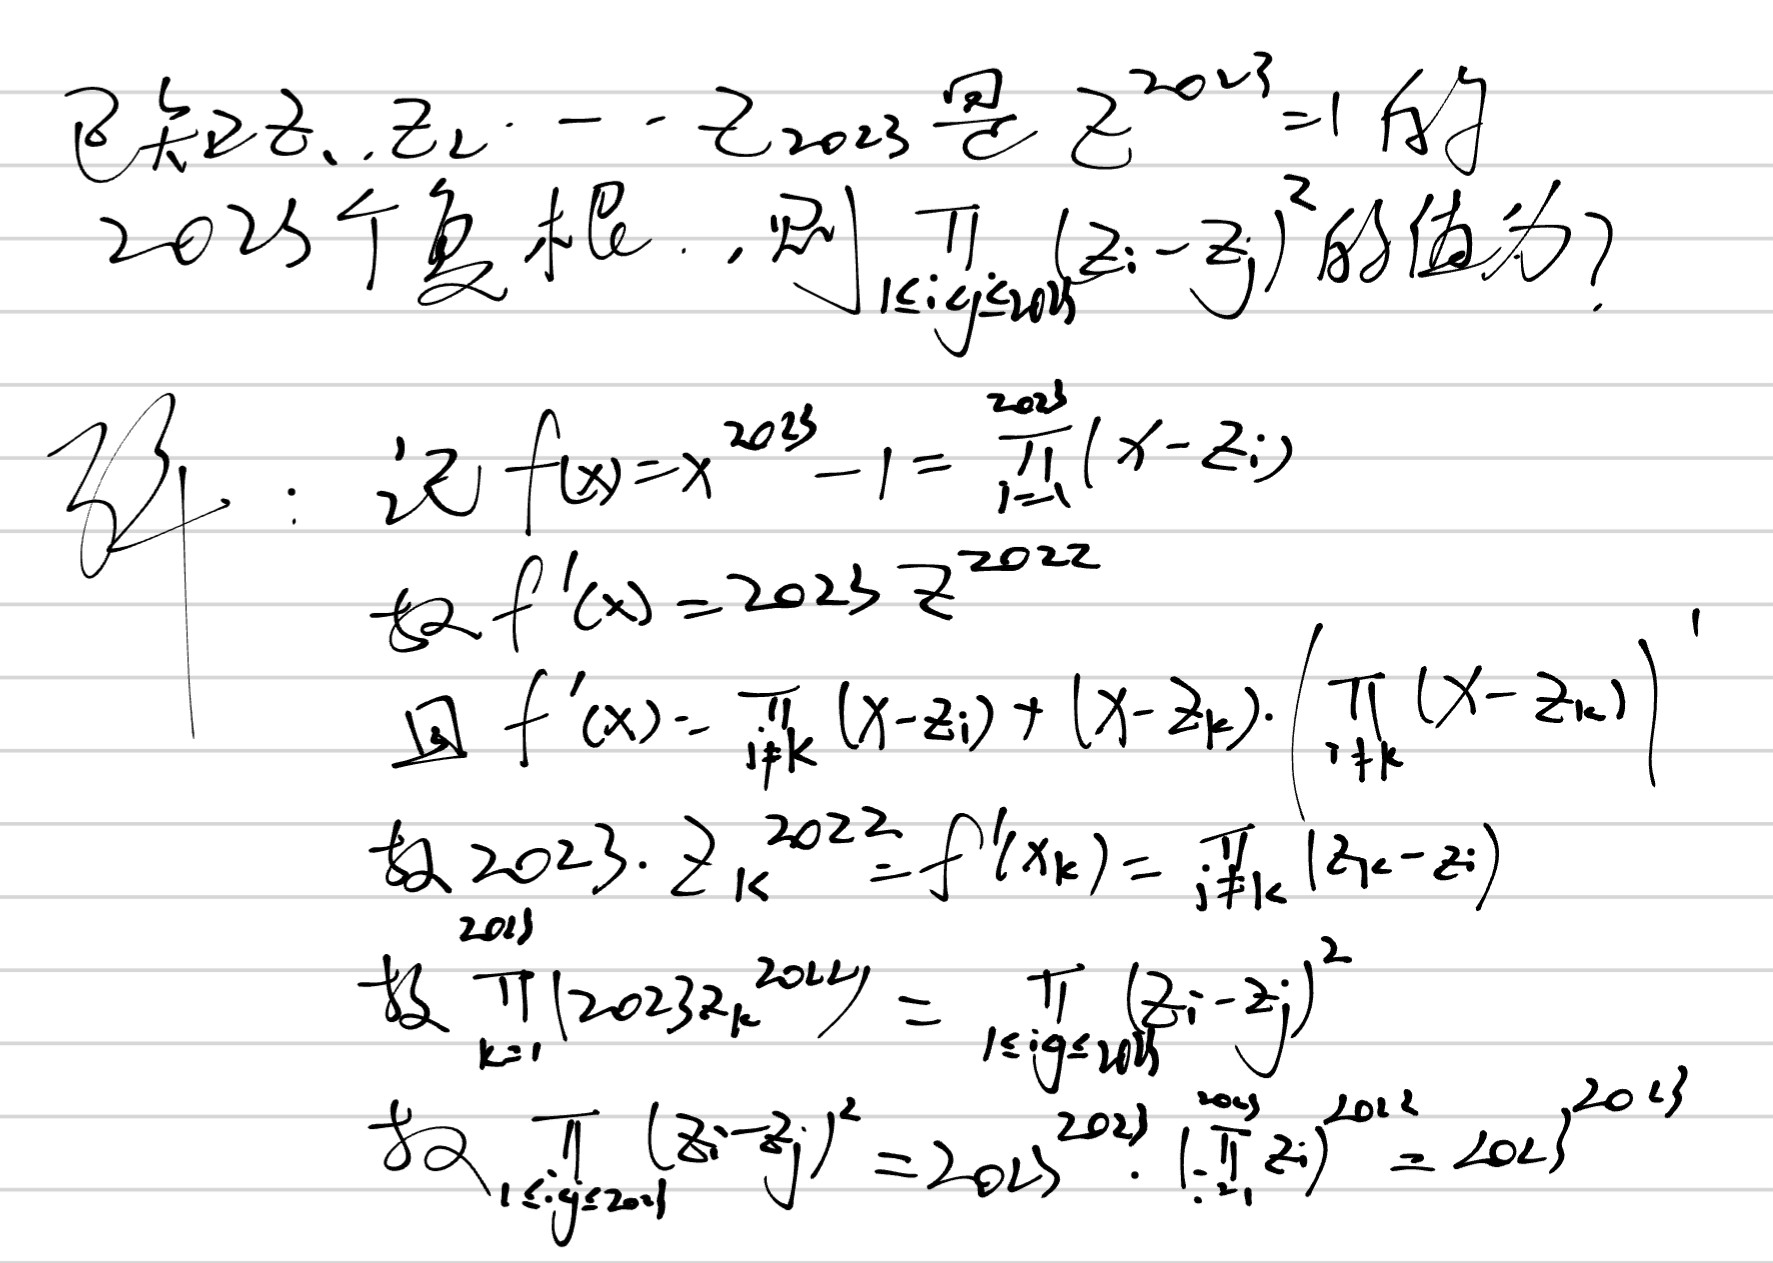 已知 z₁, z₂ ⋯ z₂₀₂₃ 是 z^2023 = 1 的
2023个复根, 则 ∏_{1≤i<j≤2023} (z_i - z_j)^2 的值为?
解: 记 f(x) = x^2023 - 1 = ∏_{i=1}^{2023} (x - z_i)
故 f'(x) = 2023 z^2022
因 f'(x) = ∏_{i≠k} (x - z_i) + (x - z_k)·(∏_{i≠k} (x - z_k))'
故 2023·z_k^2022 = f'(x_k) = ∏_{i≠k} (z_k - z_i)
故 ∏_{k=1}^{2023} (2023 z_k^2022) = ∏_{1≤i<j≤2023} (z_i - z_j)^2
故 ∏_{1≤i<j≤2023} (z_i - z_j)^2 = 2023^2023 · (∏_{i=1}^{2023} z_i)^2022 = 2023^2023